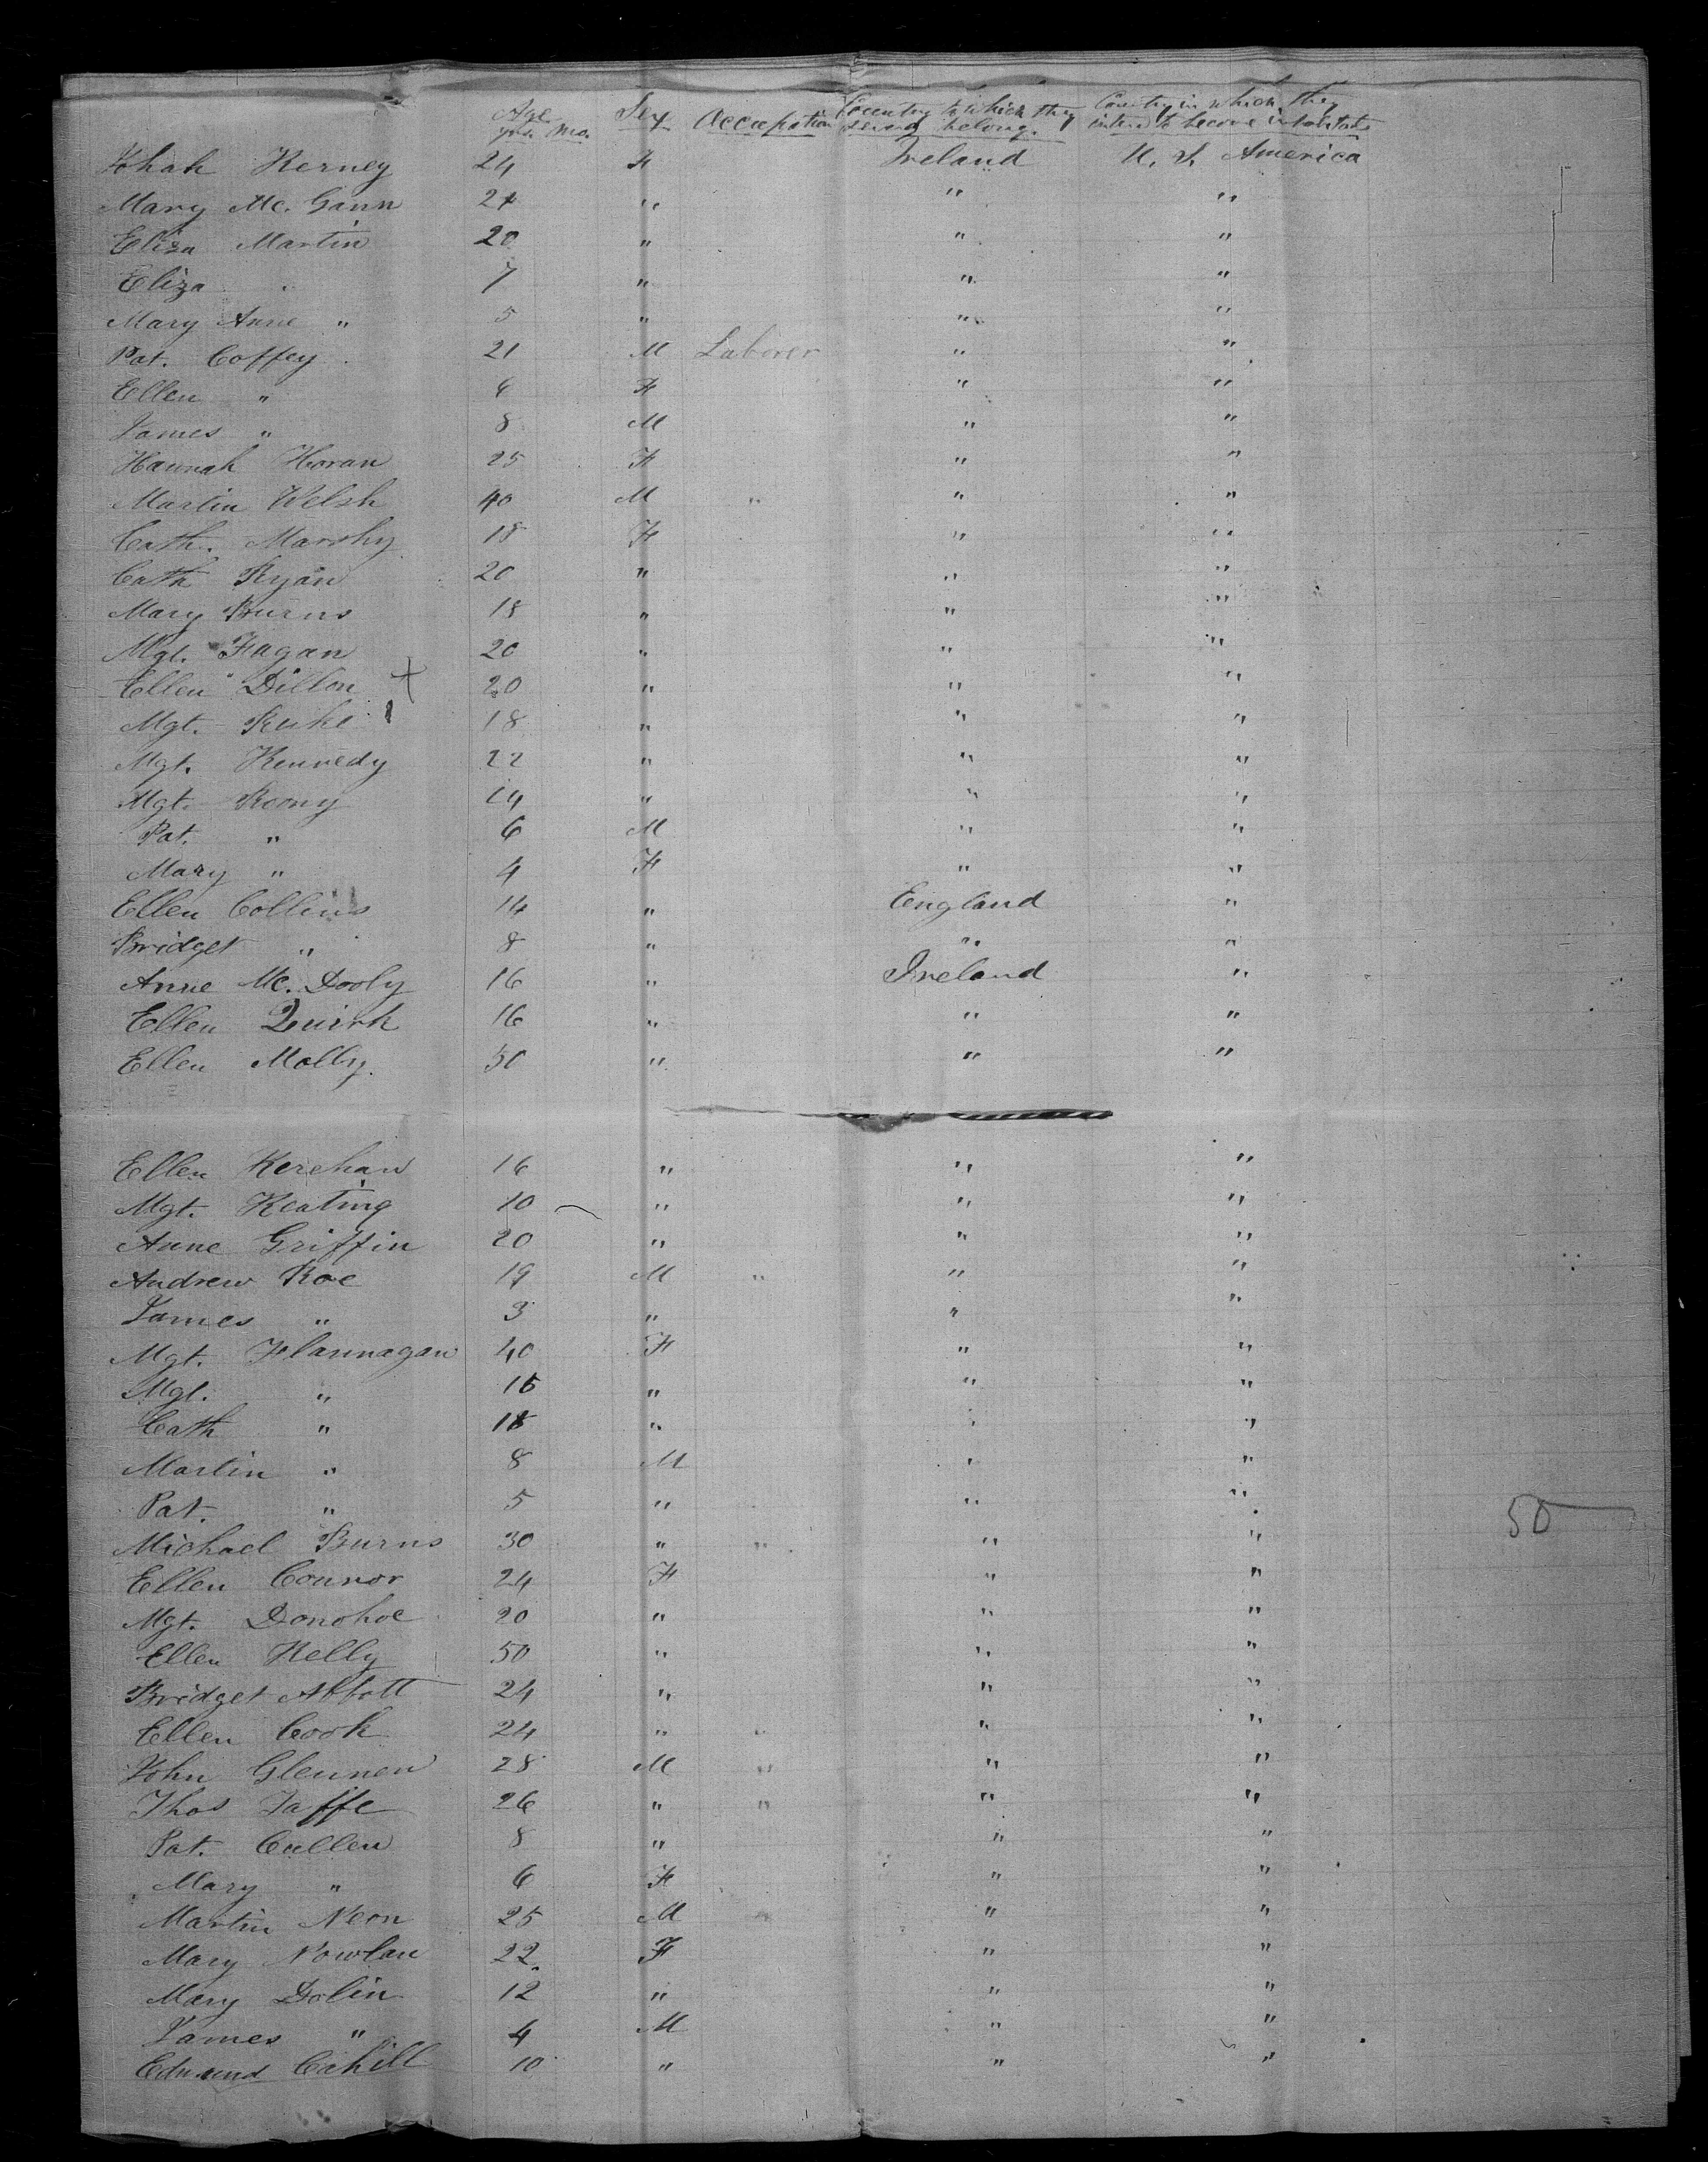 Age yrs. Mo. Sex Occupation Country to which they belong. Country in which they intend to become inhabitants
Kerney 24 F Ireland U. S. America
Mary Mc. Gann 24 " " "
Eliza Martin 20 " " "
Eliza " 7 " " "
Mary Anne " 5 " " "
Pat. Coffey 21 M Laborer " "
Ellen " 6 F " "
James " 8 M " "
Hannah Horan 25 F " "
Martin Welsh 40 M " " "
Cath. Marshy 18 F " "
Cath Ryan 20 " " "
Mary Burns 18 " " "
Mgt. Fagan 20 " " "
Ellen Dillon + 20 " " "
Mgt. Ruke 18 " " "
Mgt. Kennedy 22 " " "
Mgt. Roony 14 " " "
Pat. " 6 M " "
Mary " 4 F " "
Ellen Collins 14 " England "
Bridget " 8 " " "
Anne Mc. Dooly 16 " Ireland "
Ellen Quirk 16 " " "
Ellen Molly. 50 " " "
Ellen Kerehan 16 " " "
Mgt. Keating 10 " " "
Anne Griffin 20 " " "
Andrew Roe 19 M " " "
James " 3 " " "
Mgt. Flannagan 40 F " "
Mgt. " 16 " " "
Cath " 18 " " "
Martin " 8 M " "
Pat. " 5 " " "
50
Michael Burns 30 " " " "
Ellen Connor 24 F " "
Mgt. Donohoe 20 " " "
Ellen Kelly 50 " " "
Bridget Abbott 24 " " "
Ellen Cook 24 " " " "
John Glennen 28 M " " "
Thos Taffe 26 " " " "
Pat. Cullen 8 " " "
Mary " 6 F " "
Martin Neon 25 M " " "
Mary Nowlan 22 F " "
Mary Dolin 12 " " "
James " 4 M " "
Edmund Cahill 10 " " "